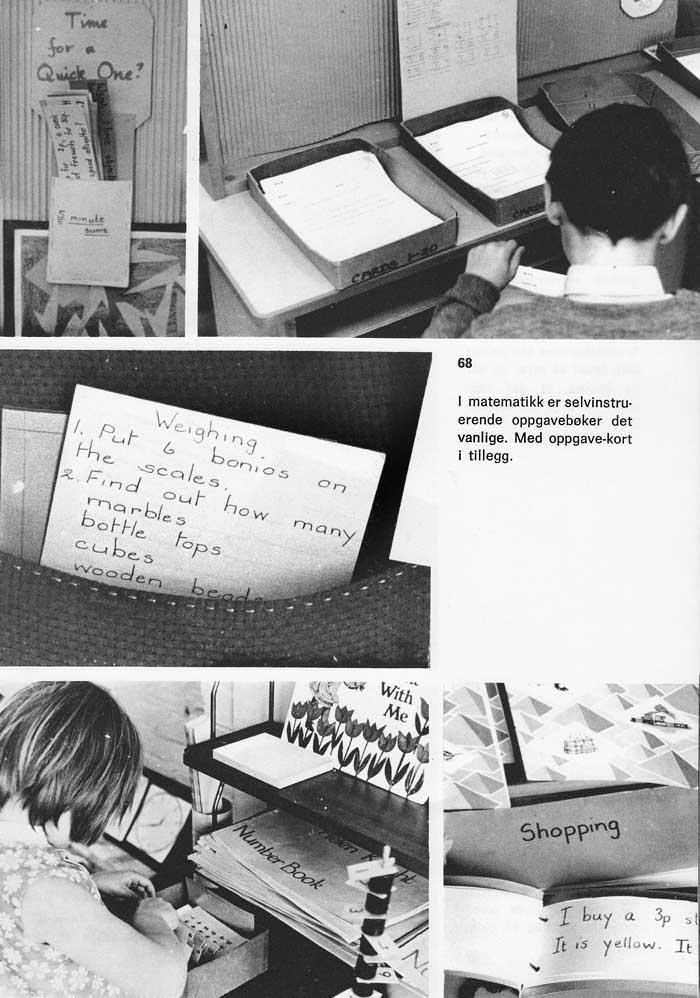 Time
for a
Quick One?
minute
sums
CARDS 1-20
CARDS
68
I matematikk er selvinstru-
erende oppgavebøker det
vanlige. Med oppgave-kort
i tillegg.
Weighing.
1. Put 6 bonios on
the scales.
2. Find out how many
marbles
bottle tops
cubes
wooden beads
With
Me
Number Book
Shopping
I buy a 3p
It is yellow. It